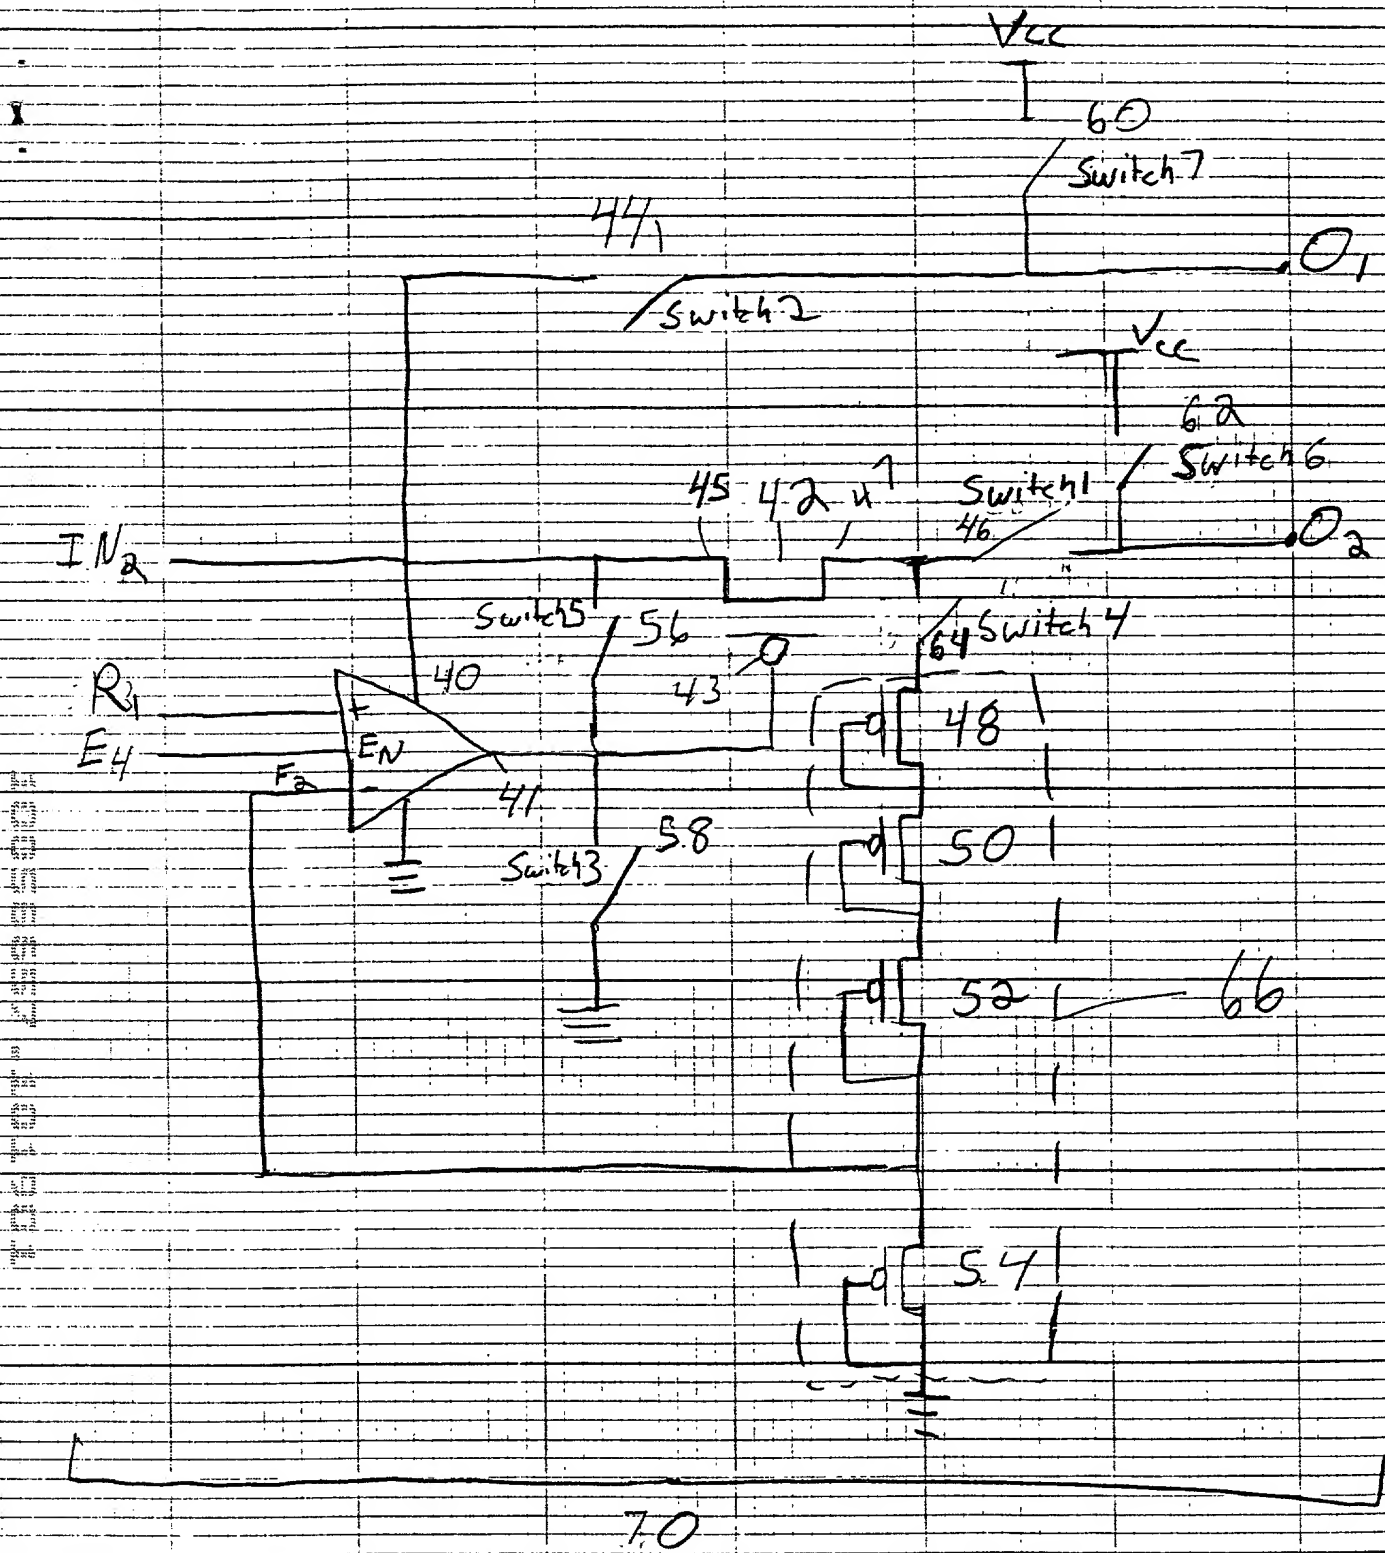 Vcc
60
Switch7
44,
O1
Switch2
Vcc
62
Switch6
45 42 47
Switch1
46
IN2
O2
Switch5
56
64 Switch4
40
43
R1
+
48
E4
EN
F2
-
41
58
50
Switch3
52
66
54
70